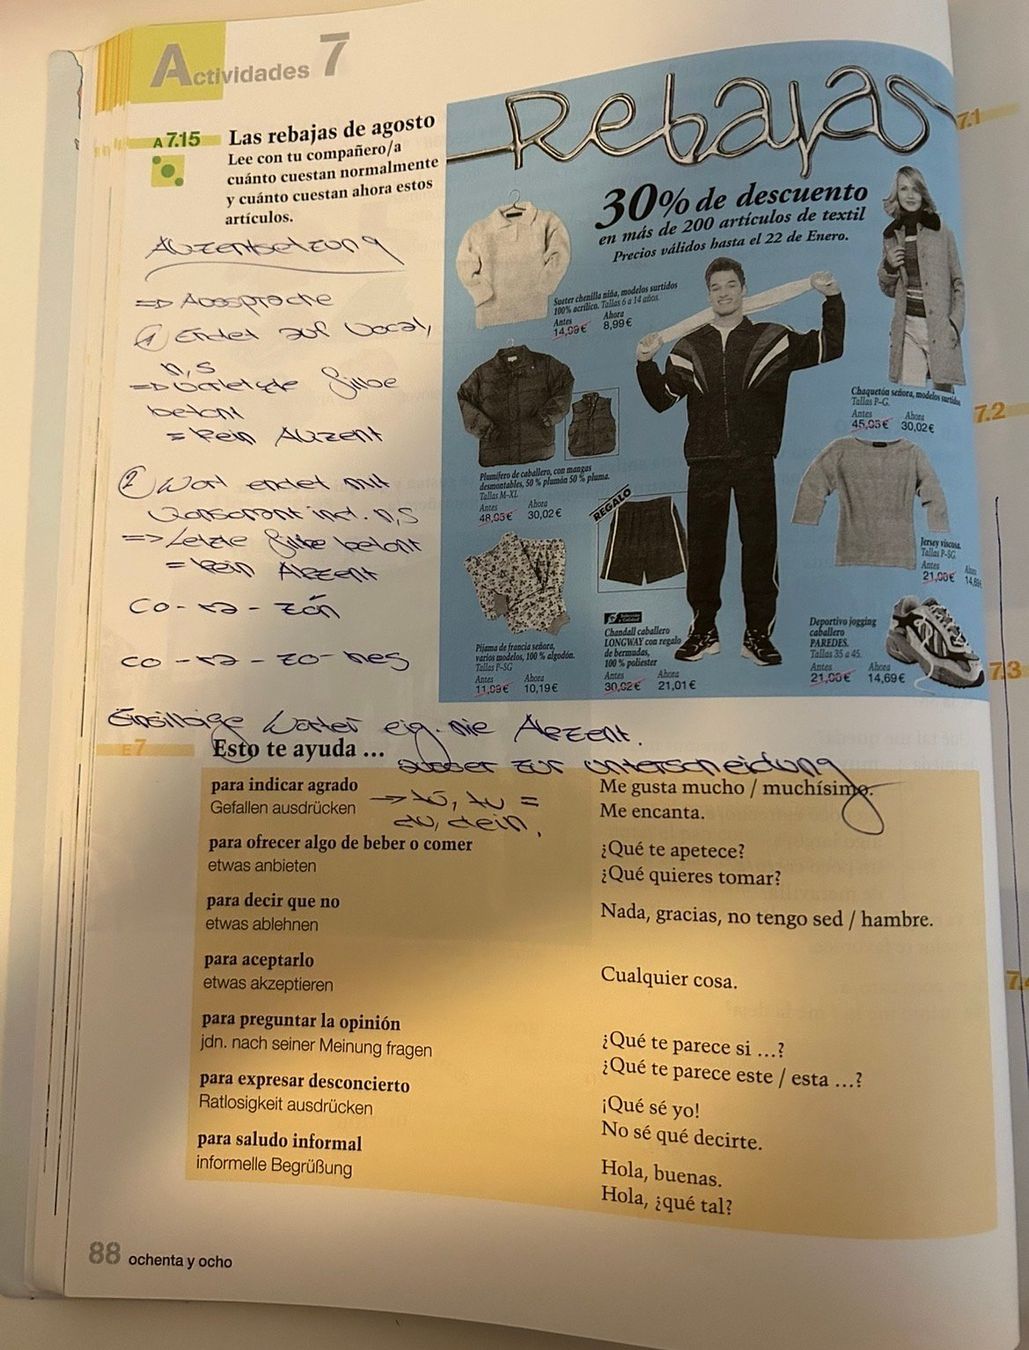 Actividades 7
A 7.15 Las rebajas de agosto
Lee con tu compañero/a
cuánto cuestan normalmente
y cuánto cuestan ahora estos
artículos.
Akzentsetzung
=> Aussprache
① Endet auf Vocal,
n,s
=> vorletzte Silbe
betont
= kein Akzent
② Wort endet mit
Konsonant incl. n,s
=> Letzte Silbe betont
= kein Akzent
co - ra - zón
co - ra - zo - nes
Einsilbige Wörter eig. nie Akzent.
ausser zur Unterscheidung
→ tú, tu =
du, dein.
Rebajas
30% de descuento
en más de 200 artículos de textil
Precios válidos hasta el 22 de Enero.
Sueter chenilla niña, modelos surtidos
100% acrílico. Tallas 6 a 14 años.
Antes Ahora
14,99€ 8,99€
Chaquetón señora, modelos surtidos
Tallas P-G.
Antes Ahora
45,03€ 30,02€
Plumífero de caballero, con mangas
desmontables, 50 % plumón 50 % pluma.
Tallas M-XL
Antes Ahora
48,03€ 30,02€
REGALO
Jersey viscosa.
Tallas P-SG
Antes
21,00€
Pijama de francia señora,
varios modelos, 100 % algodón.
Tallas P-SG
Antes Ahora
11,99€ 10,19€
Chandall caballero
LONGWAY con regalo
de bermudas,
100 % poliester
Antes Ahora
30,02€ 21,01€
Deportivo jogging
caballero
PAREDES.
Tallas 35 a 45.
Antes Ahora
21,00€ 14,69€
E 7 Esto te ayuda …
para indicar agrado Me gusta mucho / muchísimo.
Gefallen ausdrücken Me encanta.
para ofrecer algo de beber o comer ¿Qué te apetece?
etwas anbieten ¿Qué quieres tomar?
para decir que no Nada, gracias, no tengo sed / hambre.
etwas ablehnen
para aceptarlo Cualquier cosa.
etwas akzeptieren
para preguntar la opinión ¿Qué te parece si …?
jdn. nach seiner Meinung fragen ¿Qué te parece este / esta …?
para expresar desconcierto ¡Qué sé yo!
Ratlosigkeit ausdrücken No sé qué decirte.
para saludo informal Hola, buenas.
informelle Begrüßung Hola, ¿qué tal?
88 ochenta y ocho
7.1
7.2
7.3